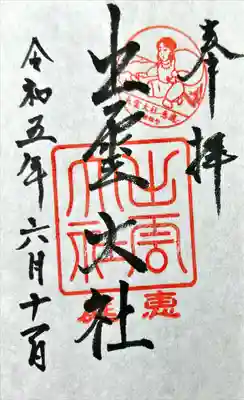 奉拝
出雲大社
出雲大社
令和五年六月十一日